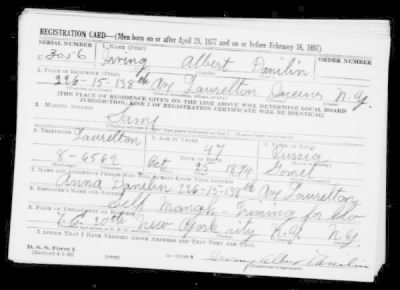 REGISTRATION CARD—(Men born on or after April 28, 1877 and on or before February 16, 1897)
SERIAL NUMBER 1. NAME (Print) ORDER NUMBER
3056 Irving Albert Danilin
2. PLACE OF RESIDENCE (Print)
226-15-138th Av Laurelton Queens N.Y.
[THE PLACE OF RESIDENCE GIVEN ON THE LINE ABOVE WILL DETERMINE LOCAL BOARD
JURISDICTION; LINE 2 OF REGISTRATION CERTIFICATE WILL BE IDENTICAL]
3. MAILING ADDRESS
Same
4. TELEPHONE 5. AGE IN YEARS 6. PLACE OF BIRTH
Laurelton 47 Russia
DATE OF BIRTH
8-6562 Oct 25 1894
7. NAME AND ADDRESS OF PERSON WHO WILL ALWAYS KNOW YOUR ADDRESS
Anna Danilin 226-15-138th Av Laurelton
8. EMPLOYER'S NAME AND ADDRESS
Self
9. PLACE OF EMPLOYMENT OR BUSINESS
20th New York city N.Y. N.Y.
I AFFIRM THAT I HAVE VERIFIED ABOVE ANSWERS AND THAT THEY ARE TRUE.
D. S. S. Form 1
(Revised 4-1-42) Irving Albert Danilin
(Registrant's signature)